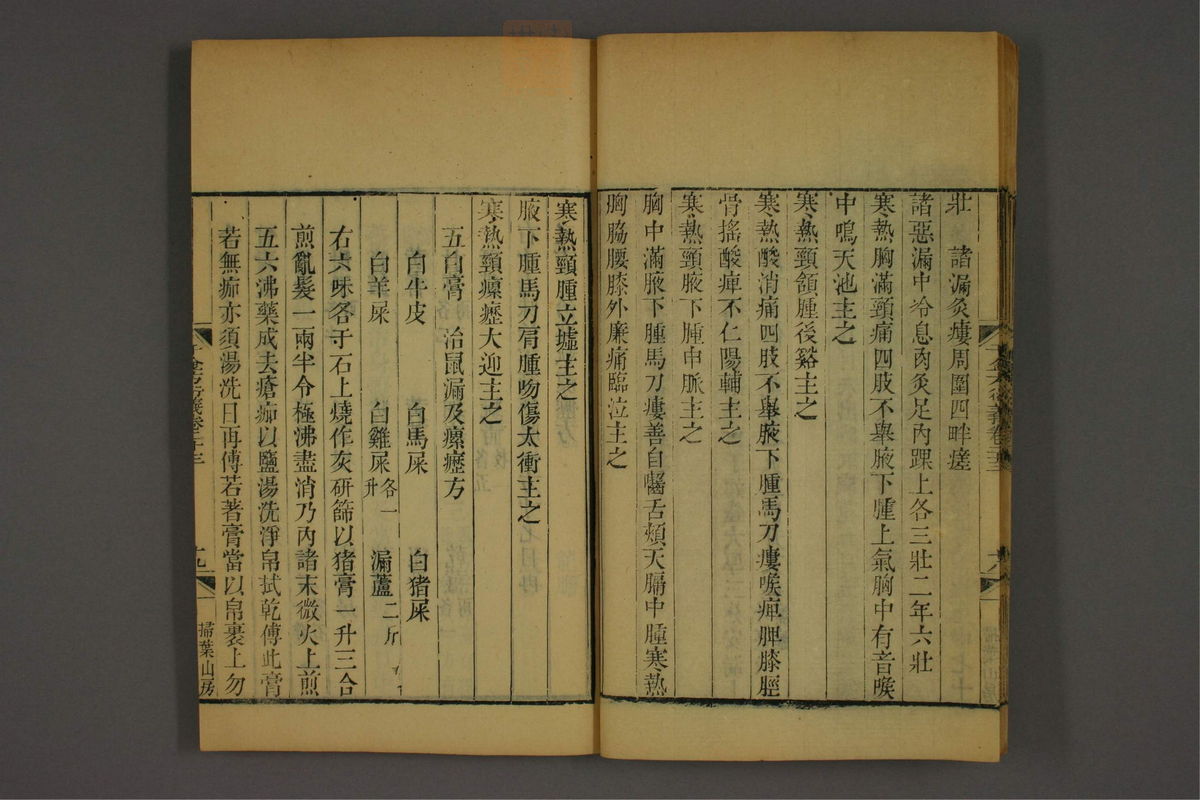 壯　諸漏灸瘻周圍四畔瘥
諸惡漏中冷息肉灸足內踝上各三壯二年六壯
寒熱胸滿頸痛四肢不舉腋下腫上氣胸中有音喉
中鳴天池主之
寒熱頸頷腫後谿主之
寒熱酸消痛四肢不舉腋下腫馬刀瘻喉痺脾膝脛
骨搖酸痺不仁陽輔主之
寒熱頸腋下腫申脈主之
胸中滿腋下腫馬刀瘻善自嚙舌頰天膈中腫寒熱
胸脇腰膝外廉痛臨泣主之
寒熱頸腫丘墟主之
腋下腫馬刀肩腫吻傷太衝主之
寒熱頸瘰癧大迎主之
五白膏　治鼠漏及瘰癧方
白牛皮　白馬屎　白猪屎
白羊屎　白雞屎各一升　漏蘆二斤
右六味各于石上燒作灰研篩以猪膏一升三合
煎亂髮一兩半令極沸盡消乃內諸末微火上煎
五六沸藥成去瘡痂以鹽湯洗淨帛拭乾傅此膏
若無痂亦須湯洗日再傅若著膏當以帛裹上勿
掃葉山房